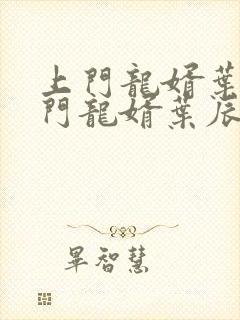 上門龍婿葉
門龍婿葉辰
畢智慧